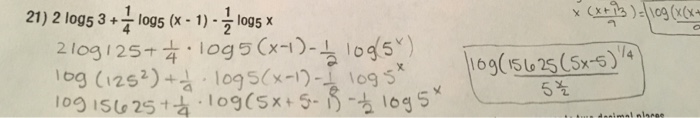 21) 2 log5 3 + 1/4 log5 (x - 1) - 1/2 log5 x
2log125 + 1/4 · log5(x-1) - 1/2 log(5^x)
log(125²) + 1/4 · log5(x-1) - 1/2 log5^x
log15625 + 1/4 · log(5x+5-1) - 1/2 log5^x
log(15625(5x-5)^1/4
5^x/2